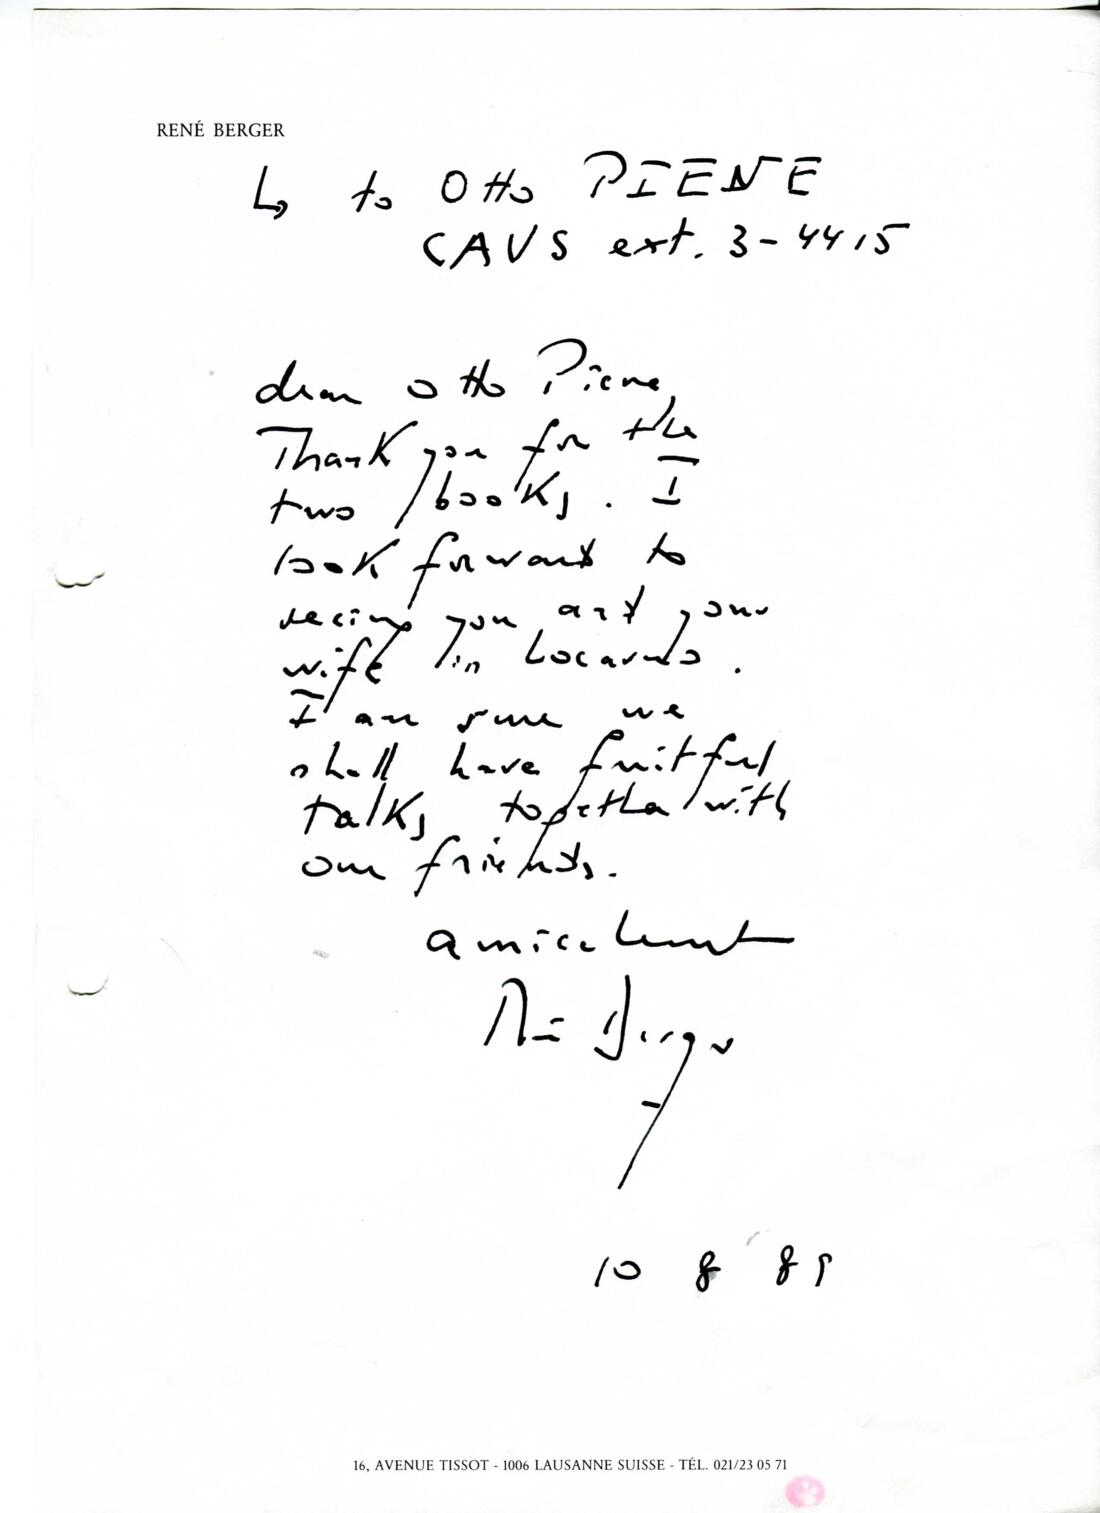 RENÉ BERGER
↳ to Otto PIENE
CAVS ext. 3-4415
dear Otto Piene,
Thank you for the
two books. I
look forward to
seeing you and your
wife in Locarno.
I am sure we
shall have fruitful
talks together with
our friends.
amicalement
René Berger
10 8 89
16, AVENUE TISSOT - 1006 LAUSANNE SUISSE - TÉL. 021/23 05 71